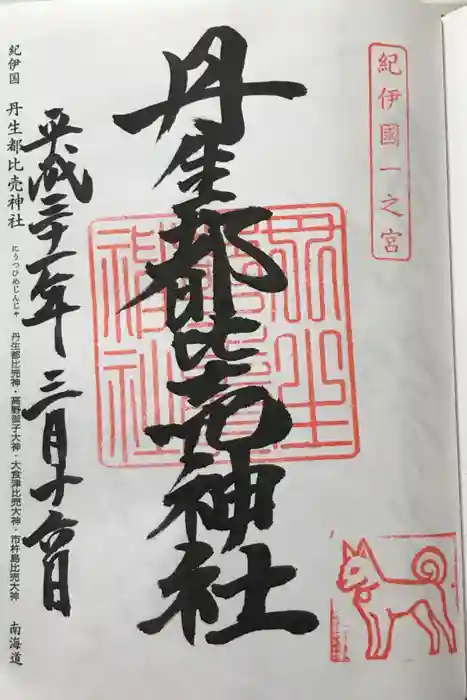 紀伊國一之宮
丹生都比売神社
平成三十一年三月十六日
紀伊国 丹生都比売神社 にうつひめじんじゃ 丹生都比売大神・高野御子大神・大食津比売大神・市杵島比売大神 南海道